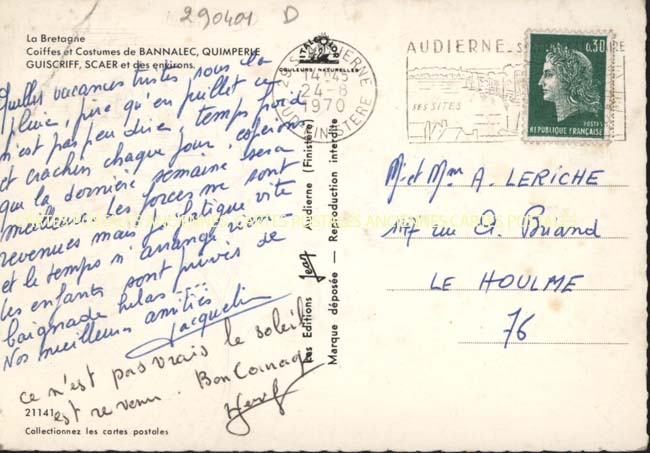 290401 D
La Bretagne
Coiffes et Costumes de BANNALEC, QUIMPERLE
GUISCRIFF, SCAER et des environs.
Quelles vacances tristes sous la
pluie, pire qu'en juillet ce
n'est pas peu dire, temps froid
et crachin chaque jour, espérons
que la dernière semaine sera
meilleure. Les forces me sont
revenues mais je fatigue vite
et le temps n'arrange rien
les enfants sont privés de
baignade hélas ...
Nos meilleures amitiés
Jacqueline
ce n'est pas vrais le soleil
est revenu. Bon Courage
Hervé
21141
Collectionnez les cartes postales
Les Editions Jean Audierne (Finistère)
Marque déposée — Reproduction interdite
COULEURS NATURELLES
29 S AUDIERNE
14H45
24-8
1970
SUD FINISTERE
AUDIERNE
SES SITES
0,30
POSTES
REPUBLIQUE FRANÇAISE
Mr et Mme A. LERICHE
147 rue A. Briand
LE HOULME
76
CARTES POSTALES ANCIENNES CARTES POSTALES